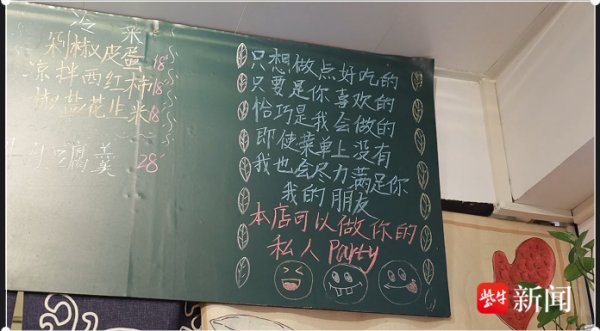 冷菜
剁椒皮蛋 18
凉拌西红柿 18
椒盐花生米 18
腐羹 28
只想做点好吃的
只要是你喜欢的
恰巧是我会做的
即使菜单上没有
我也会尽力满足你
我的朋友
本店可以做你的
私人Party
紫牛新闻